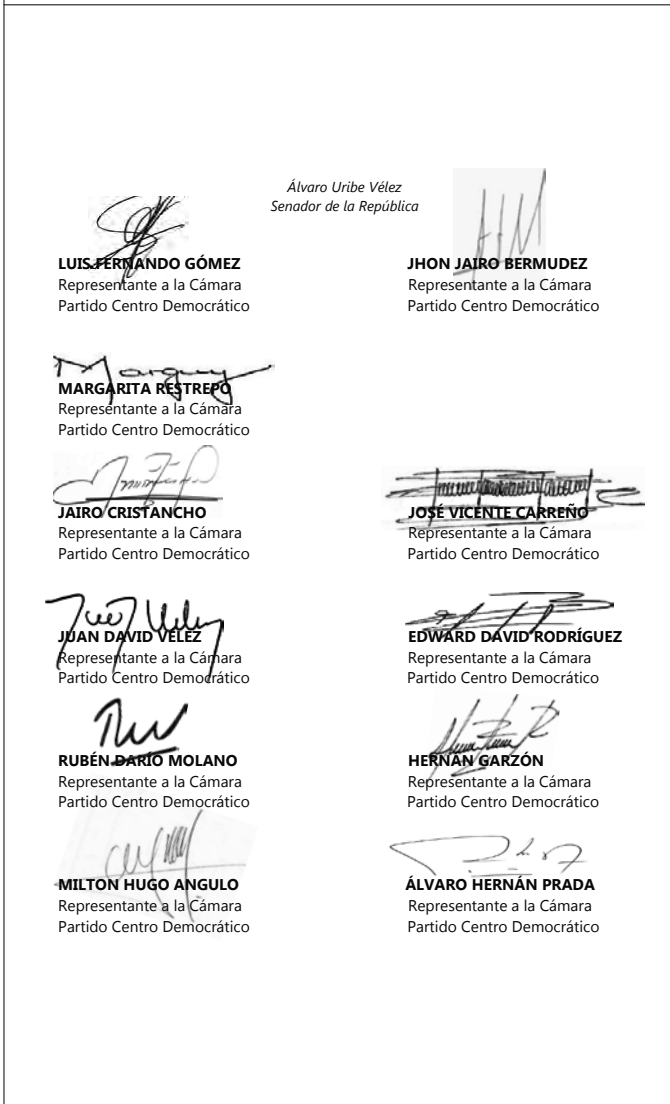 Álvaro Uribe Vélez
Senador de la República
LUIS FERNANDO GÓMEZ
Representante a la Cámara
Partido Centro Democrático
JHON JAIRO BERMUDEZ
Representante a la Cámara
Partido Centro Democrático
MARGARITA RESTREPO
Representante a la Cámara
Partido Centro Democrático
JAIRO CRISTANCHO
Representante a la Cámara
Partido Centro Democrático
JOSÉ VICENTE CARREÑO
Representante a la Cámara
Partido Centro Democrático
JUAN DAVID VÉLEZ
Representante a la Cámara
Partido Centro Democrático
EDWARD DAVID RODRÍGUEZ
Representante a la Cámara
Partido Centro Democrático
RUBÉN DARÍO MOLANO
Representante a la Cámara
Partido Centro Democrático
HERNÁN GARZÓN
Representante a la Cámara
Partido Centro Democrático
MILTON HUGO ANGULO
Representante a la Cámara
Partido Centro Democrático
ÁLVARO HERNÁN PRADA
Representante a la Cámara
Partido Centro Democrático